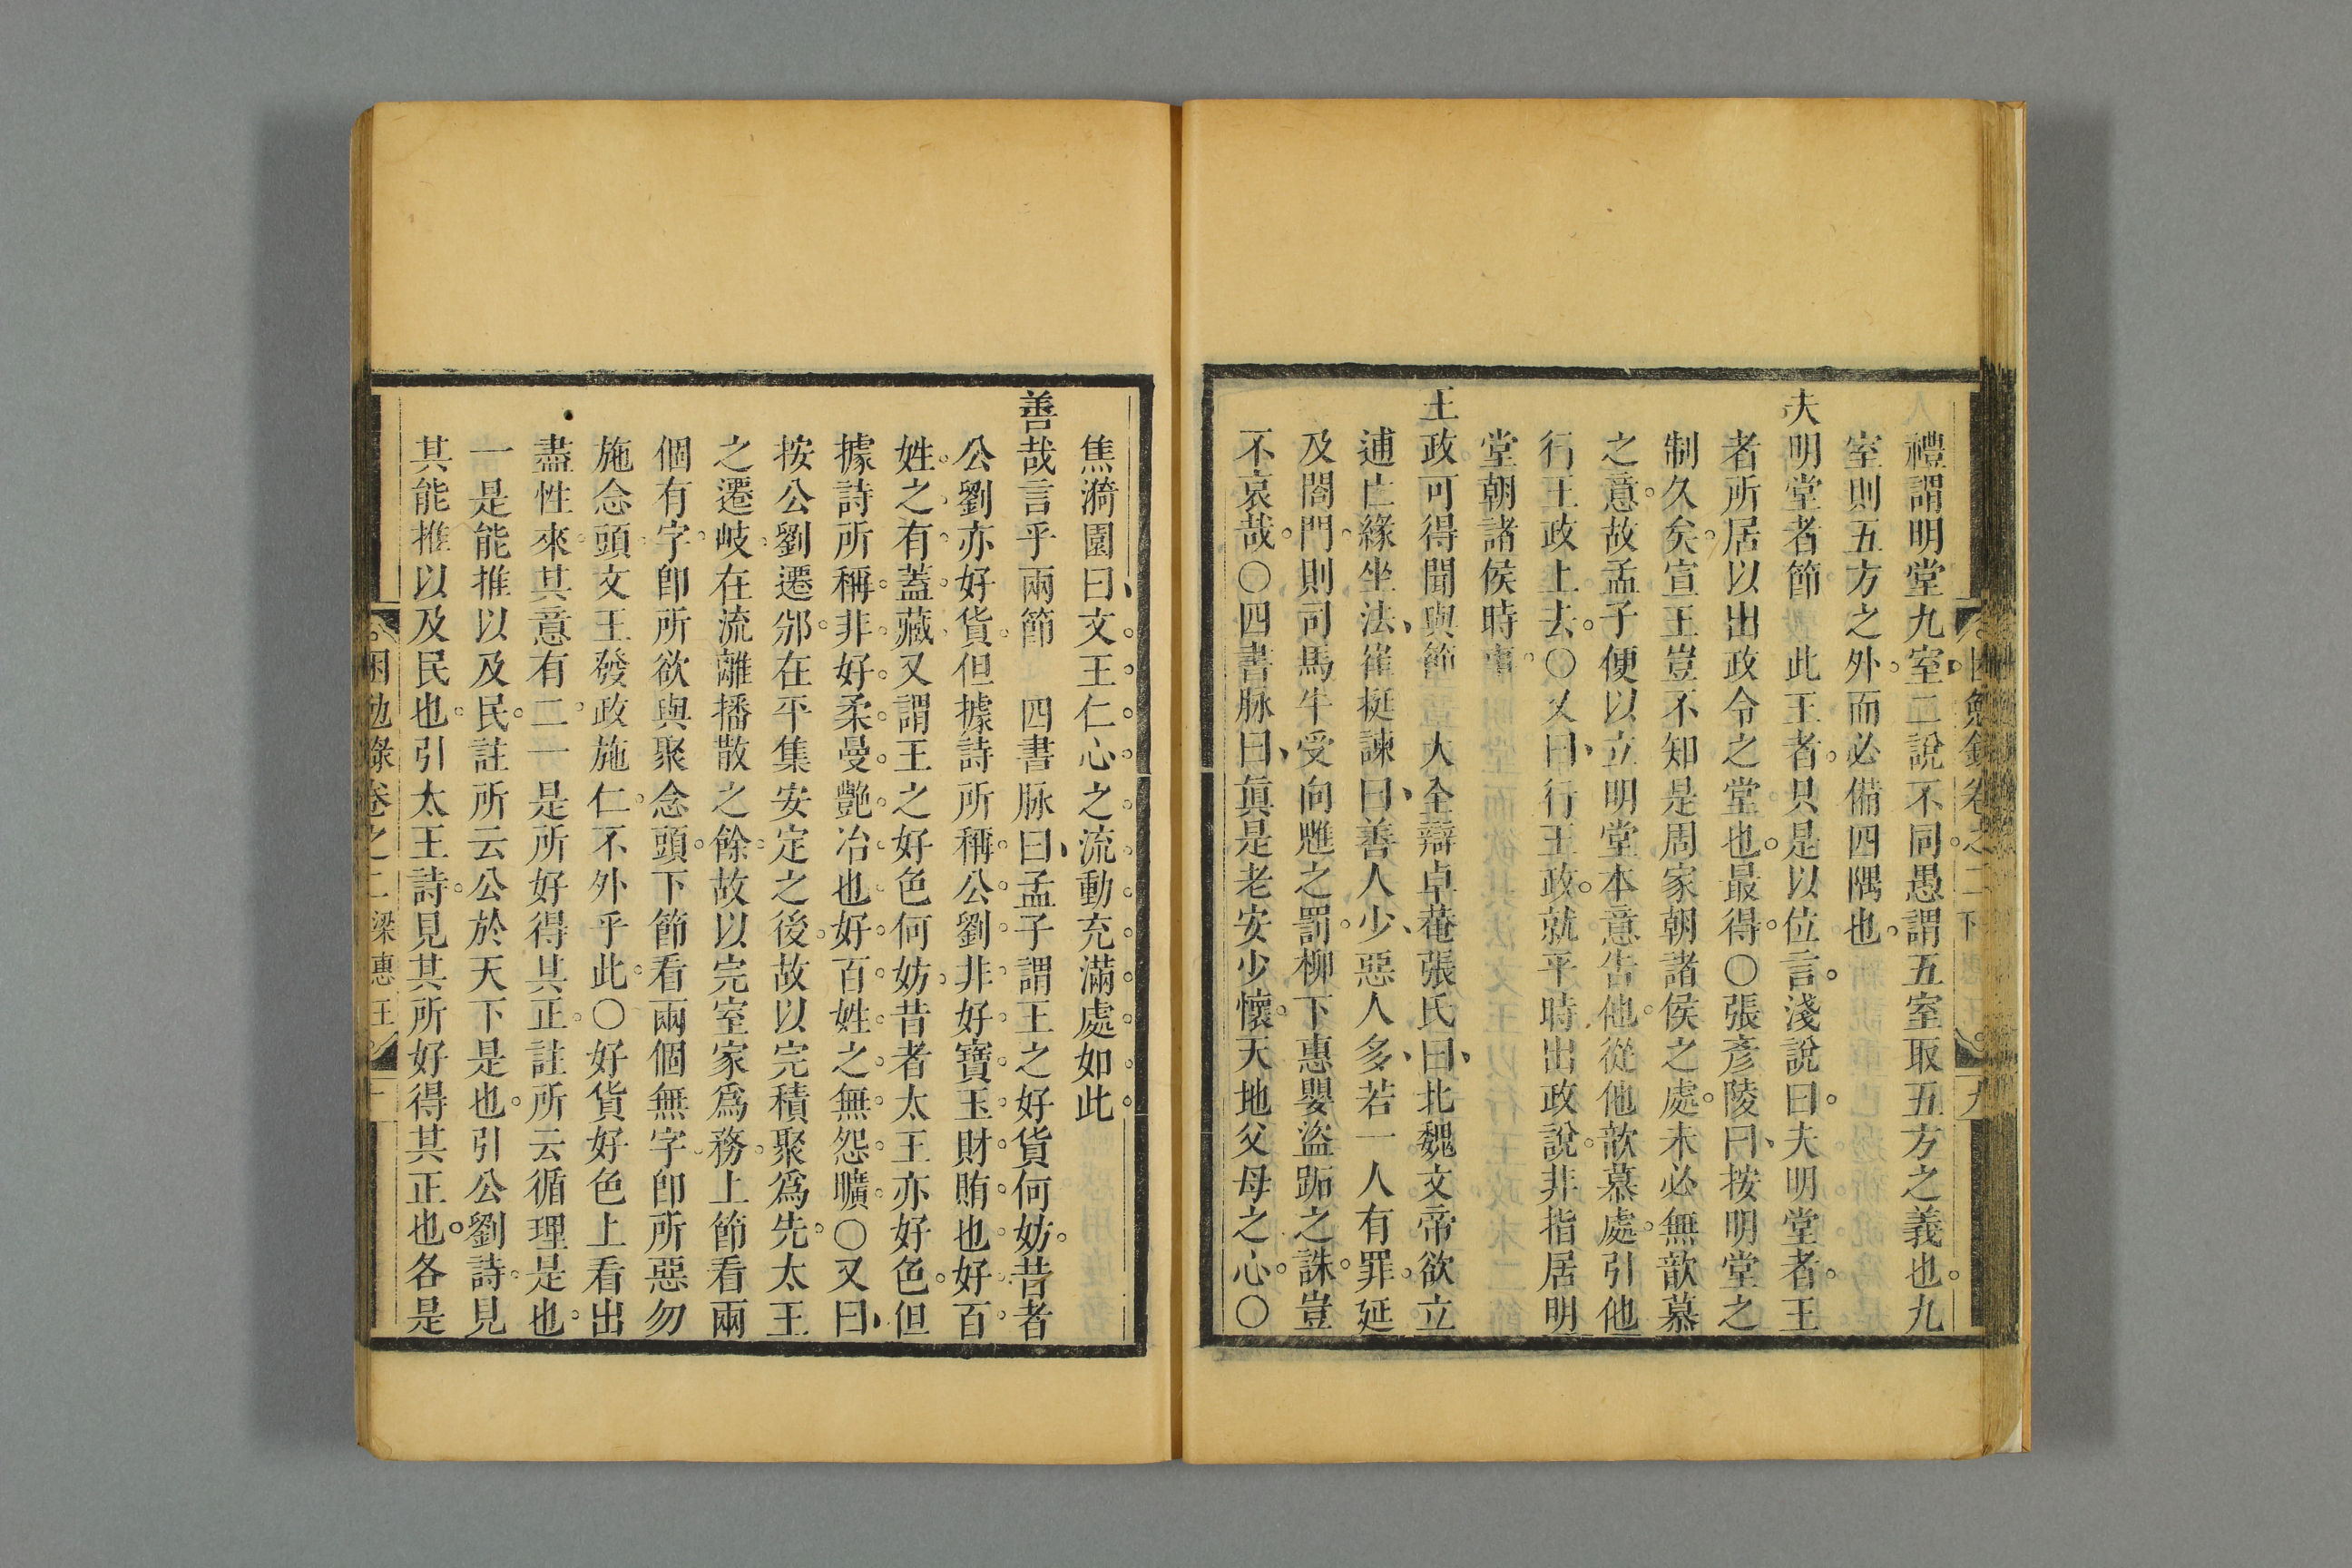 禮謂明堂九室二說不同愚謂五室取五方之義也九
室則五方之外而必備四隅也
夫明堂者節　此王者只是以位言淺說曰夫明堂者王
者所居以出政令之堂也最得○張彥陵曰按明堂之
制久矣宣王豈不知是周家朝諸侯之處未必無歆慕
之意故孟子便以立明堂本意告他從他歆慕處引他
行王政上去○又曰行王政就平時出政說非指居明
堂朝諸侯時事
王政可得聞與節　大全辯卓菴張氏曰北魏文帝欲立
逋亡緣坐法崔挺諫曰善人少惡人多若一人有罪延
及閤門則司馬牛受向魋之罰柳下惠嬰盜跖之誅豈
不哀哉○四書脉曰眞是老安少懷天地父母之心○
焦漪園曰文王仁心之流動充滿處如此
善哉言乎兩節　四書脉曰孟子謂王之好貨何妨昔者
公劉亦好貨但據詩所稱公劉非好寶玉財賄也好百
姓之有蓋藏又謂王之好色何妨昔者太王亦好色但
據詩所稱非好柔曼艷冶也好百姓之無怨曠○又曰
按公劉遷邠在平集安定之後故以完積聚爲先太王
之遷岐在流離播散之餘故以完室家爲務上節看兩
個有字卽所欲與聚念頭下節看兩個無字卽所惡勿
施念頭文王發政施仁不外乎此○好貨好色上看出
盡性來其意有二一是所好得其正註所云循理是也
一是能推以及民註所云公於天下是也引公劉詩見
其能推以及民也引太王詩見其所好得其正也各是
困勉錄卷之二 梁惠王